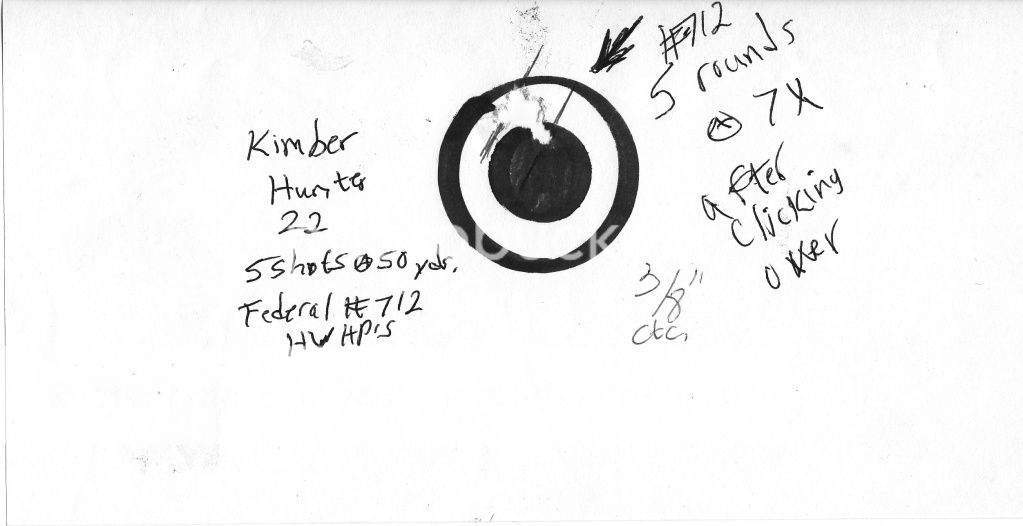 Kimber
Hunter
22
5 shots @ 50 yds.
Federal # 712
HW HP's
#712
5 rounds
@ 7X
after
clicking
over
3/8"
ctc.